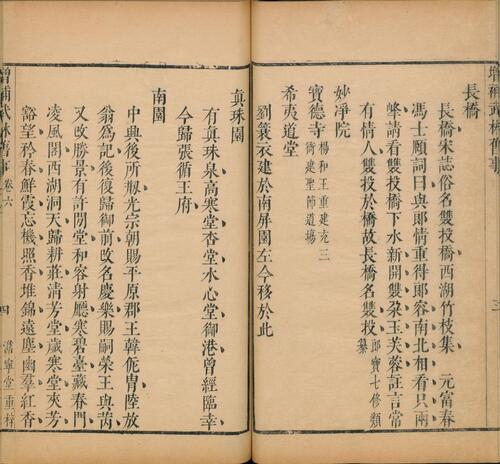 增補武林舊事
三
長橋
長橋宋誌俗名雙投橋西湖竹枝集 元富春
馮士頤詞曰與郎情重得郎容南北相看只兩
峰請看雙投橋下水新開雙朶玉芙蓉註言常
有情人雙投於橋故長橋名雙投 郎寶七修類纂
妙淨院
寶德寺 楊和王重建充三衙建聖節道場
希夷道堂
劉蓑衣建於南屏園左今移於此
真珠園
有真珠泉高寒堂杏堂水心堂御港曾經臨幸
今歸張循王府
南園
中興後所剏光宗朝賜平原郡王韓侂冑陸放
翁為記後復歸御前改名慶樂賜嗣榮王與芮
又改勝景有許閒堂和容射廳寒碧臺藏春門
凌風閣西湖洞天歸耕莊清芳堂歲寒堂夾芳
豁望矜春鮮霞忘機照香堆錦遠塵幽翠紅香
增補武林舊事 卷六 四 澹寧堂重梓